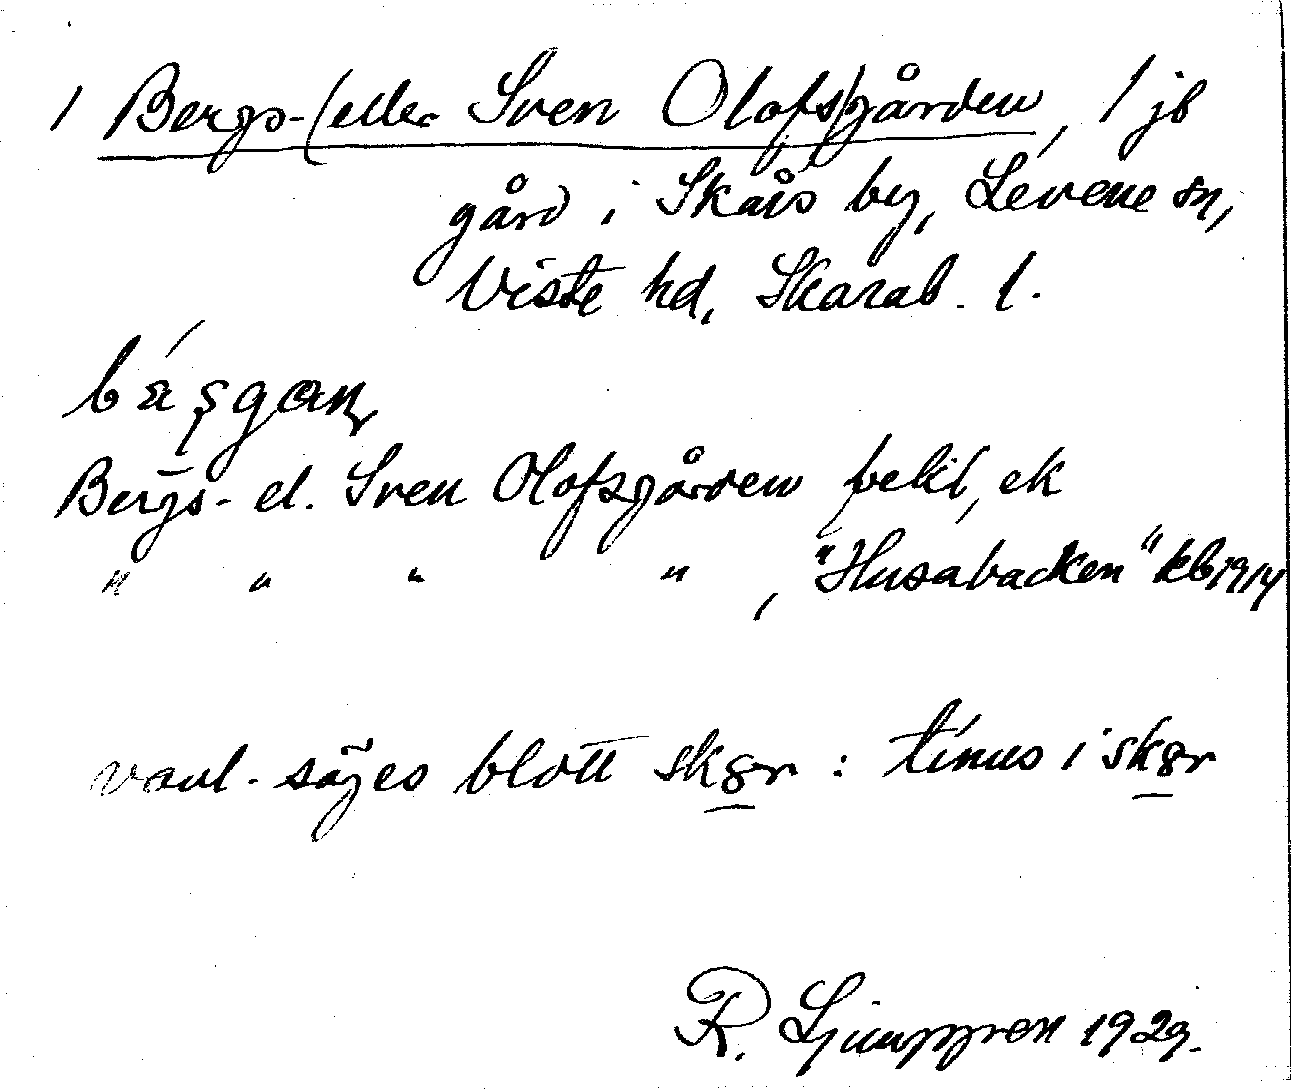 1 Bergs-(eller Sven Olofs)gården, 1 jb
gård i Skårs by, Levene sn,
Viste hd, Skarab. l.
bá̱şgan
Bergs- el. Sven Olofsgården beltl, ek
" " " " , "Husabacken" kb 1914
vanl. säjes blott skər : tínus i skər
R. Ljunggren 1929.